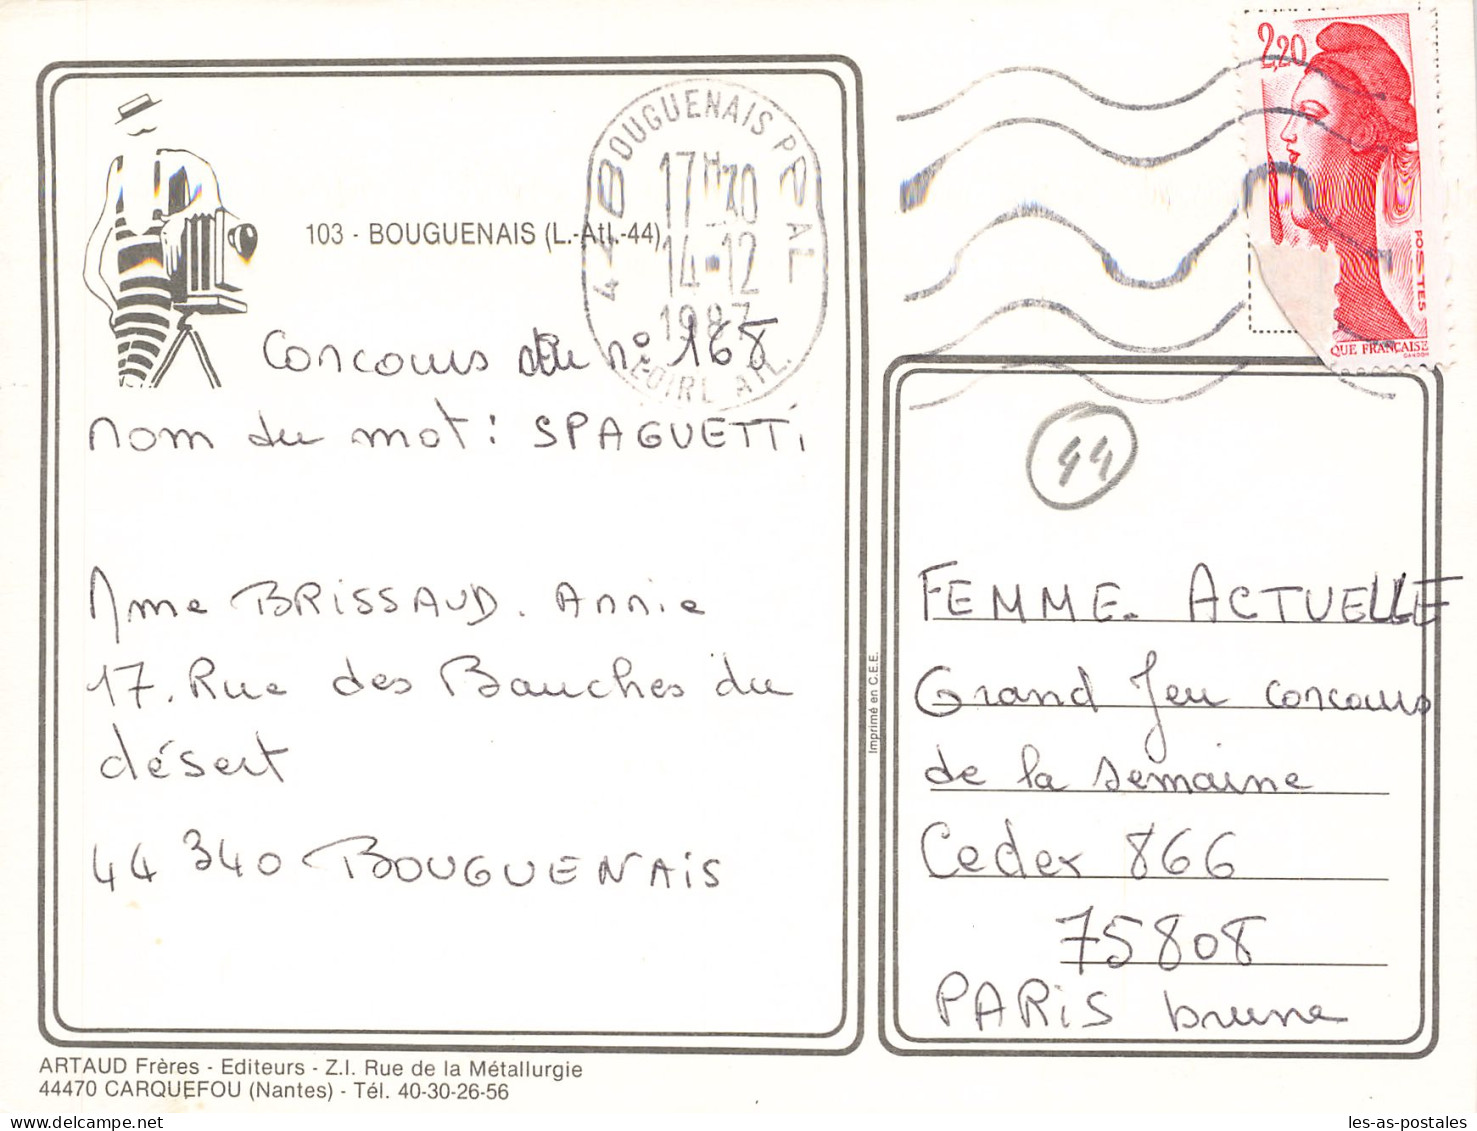 2,20
POSTES
QUE FRANÇAISE
44 BOUGUENAIS PPAL
17H30
14-12
1987
LOIRE ATL.
103 - BOUGUENAIS (L.-Atl.-44)
Concours du n° 168
nom du mot : SPAGUETTi
Mme BRISSAUD. Annie
17. Rue des Bauches du
désert
44 340 BOUGUENAiS
Imprimé en C.E.E.
44
FEMME. ACTUELLE
Grand Jeu concours
de la semaine
Cedex 866
75808
PARiS brune
ARTAUD Frères - Editeurs - Z.I. Rue de la Métallurgie
44470 CARQUEFOU (Nantes) - Tél. 40-30-26-56
les-as-postales.com